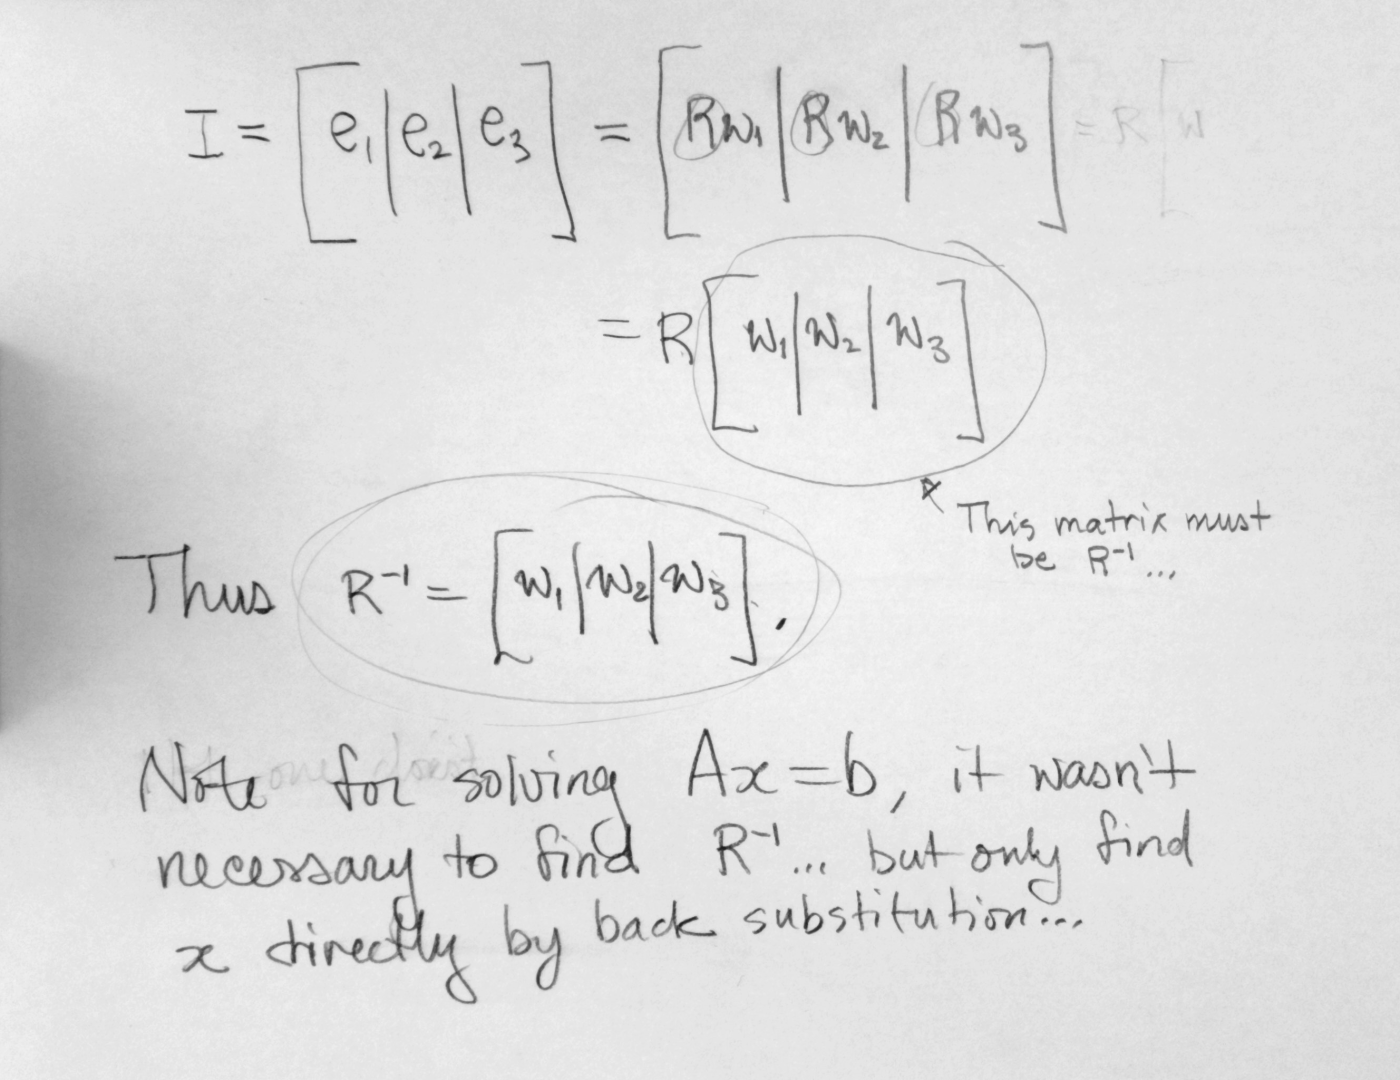 I = [e₁|e₂|e₃] = [Rw₁|Rw₂|Rw₃] = R [w
= R [w₁|w₂|w₃]
This matrix must
be R⁻¹...
Thus R⁻¹ = [w₁|w₂|w₃].
Note for solving Ax=b, it wasn't
necessary to find R⁻¹... but only find
x directly by back substitution...